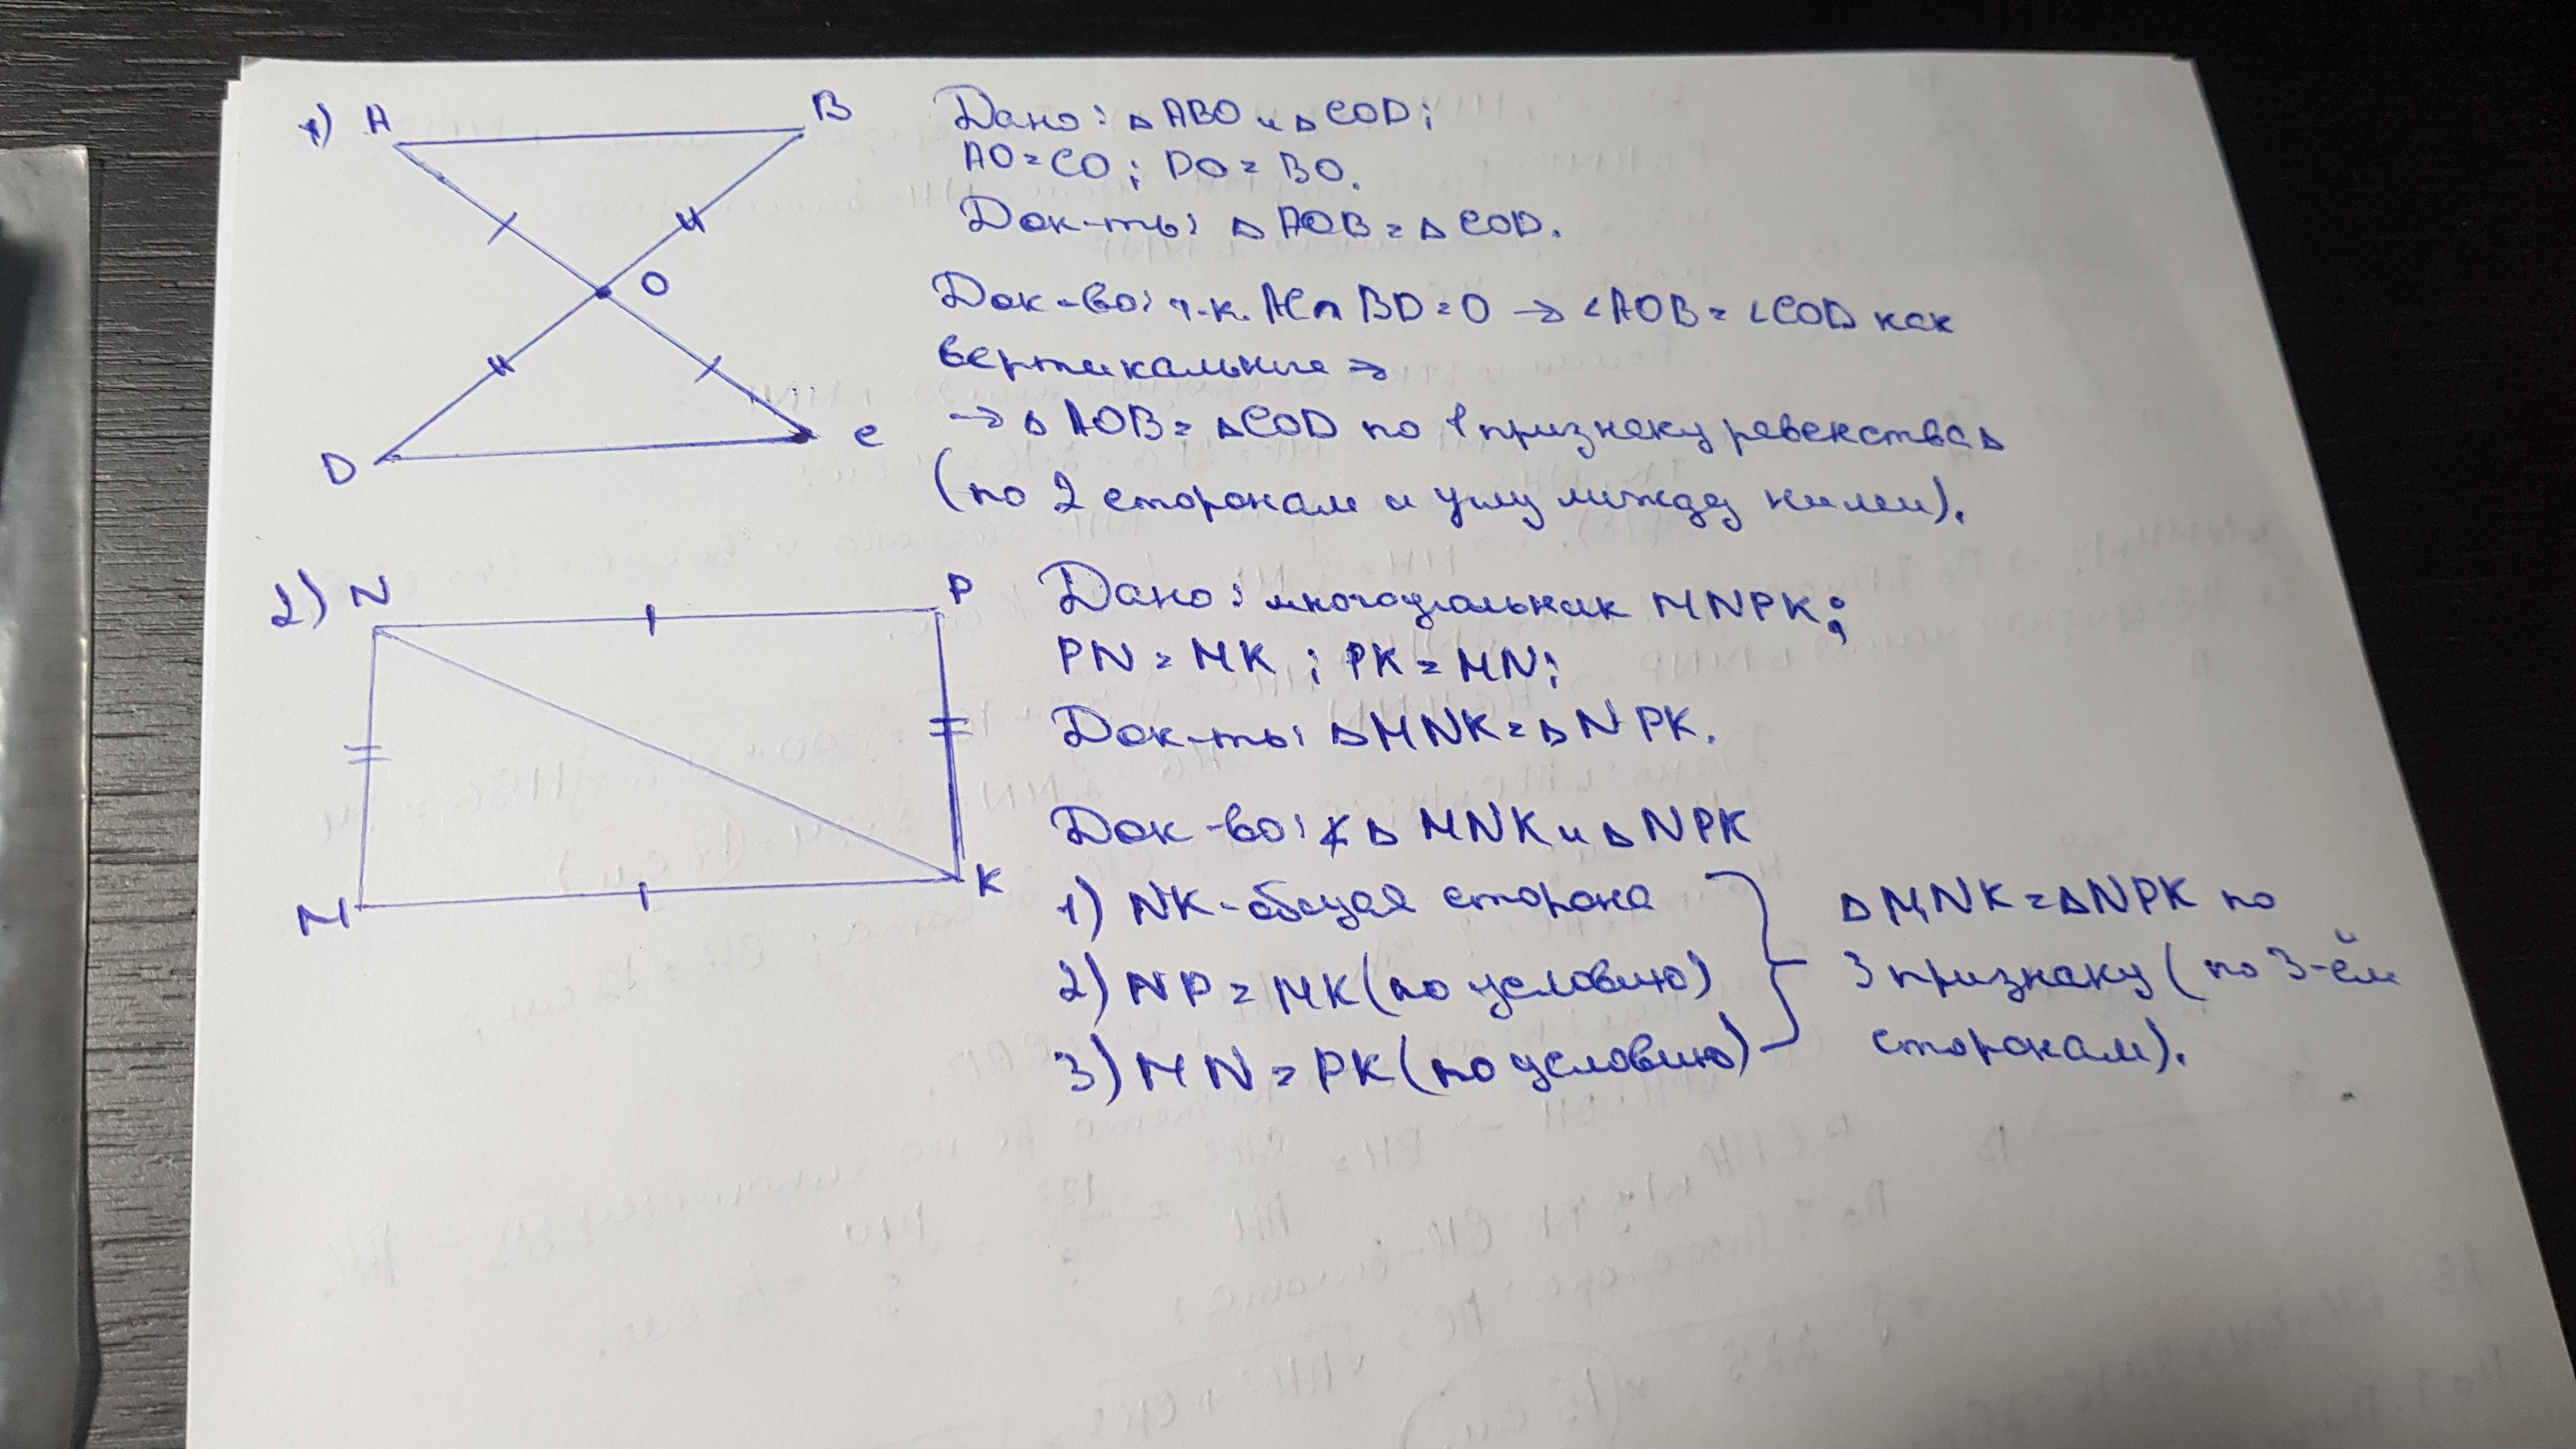 1) A B
O
D C
Дано: △ ABO и △ COD;
AO = CO; DO = BO.
Док-ть: △ AOB = △ COD.
Док-во: т.к. AC ∩ BD = O → ∠AOB = ∠COD как
вертикальные →
→ △ AOB = △ COD по 1 признаку равенства △
(по 2 сторонам и углу между ними).
2) N P
M K
Дано: многоугольник MNPK;
PN = MK; PK = MN;
Док-ть: △ MNK = △ NPK.
Док-во: ∢ △ MNK и △ NPK
1) NK - общая сторона
2) NP = MK (по условию)
3) MN = PK (по условию)
△ MNK = △ NPK по
3 признаку (по 3-ём
сторонам).